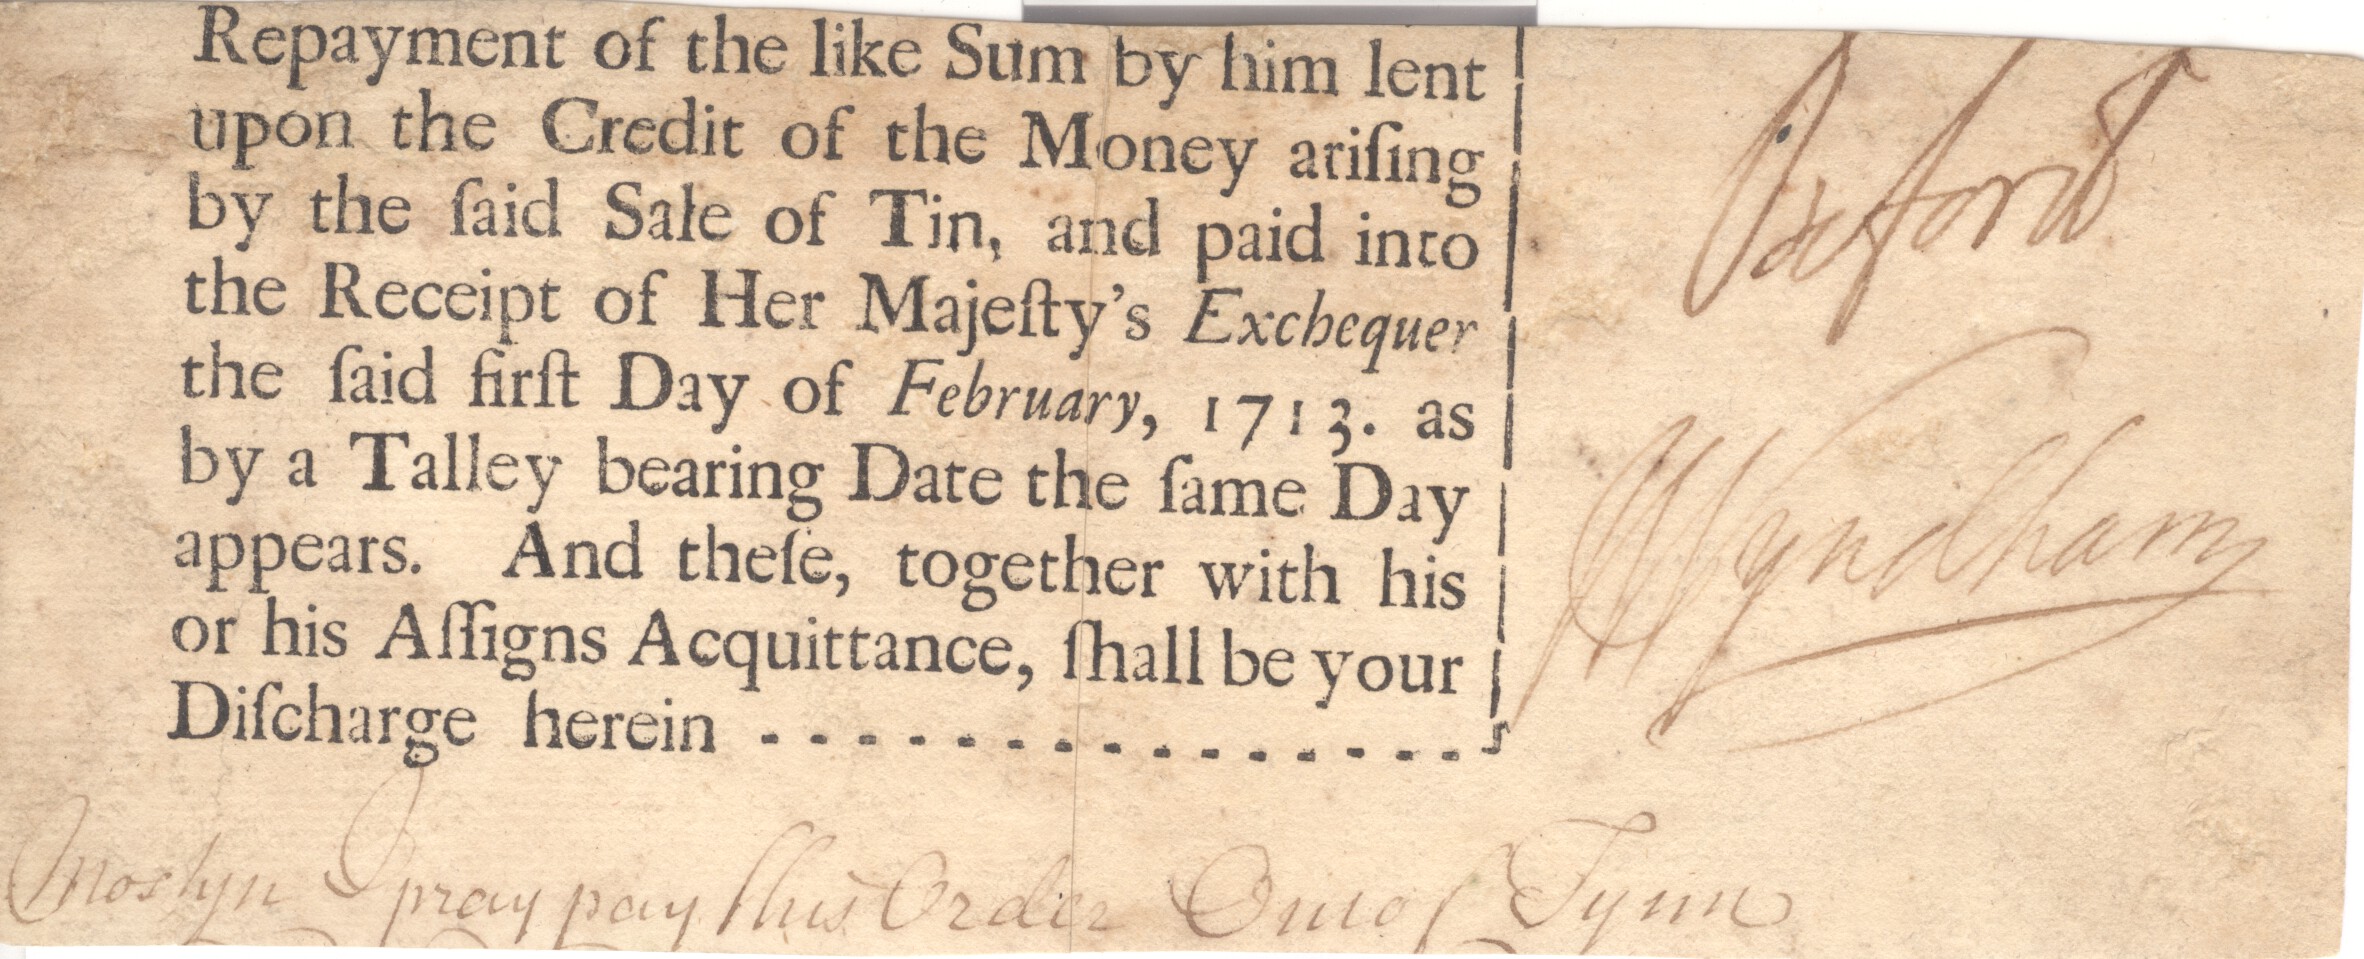 Repayment of the like Sum by him lent
upon the Credit of the Money ariſing
by the ſaid Sale of Tin, and paid into
the Receipt of Her Majeſty's Exchequer
the ſaid firſt Day of February, 1713. as
by a Talley bearing Date the ſame Day
appears. And theſe, together with his
or his Aſſigns Acquittance, ſhall be your
Diſcharge herein - - - - - - - - - - - - - - -
Oxford
Wyndham
Mostyn I pray pay this Order out of Tynn